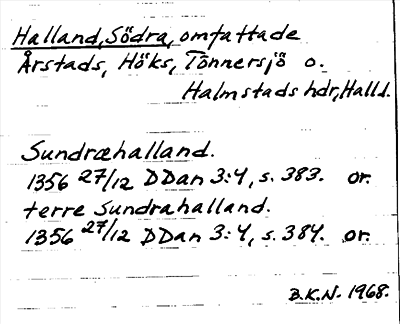 Halland, Södra, omfattade
Årstads, Höks, Tönnersjö o.
Halmstads hdr, Halld.
Sundræhalland.
1356 27/12 DDan 3:4, s. 383. or.
terre Sundrahalland.
1356 27/12 DDan 3:4, s. 384. or.
B.K.N. 1968.